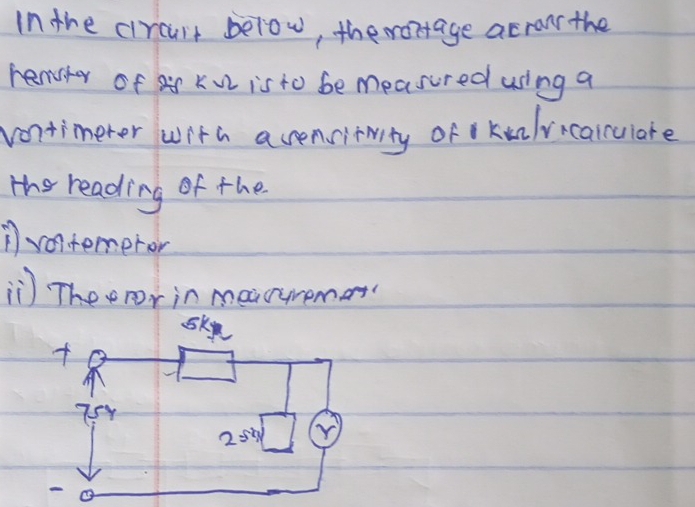 In the circuit below, the voltage across the
resistor of 25 KΩ is to be measured using a
voltimeter with a sensitivity of 1 KΩ/v. calculate
the reading of the
i) voltemeter
ii) The error in measurement
5KΩ
+
75V
25KΩ
V
-